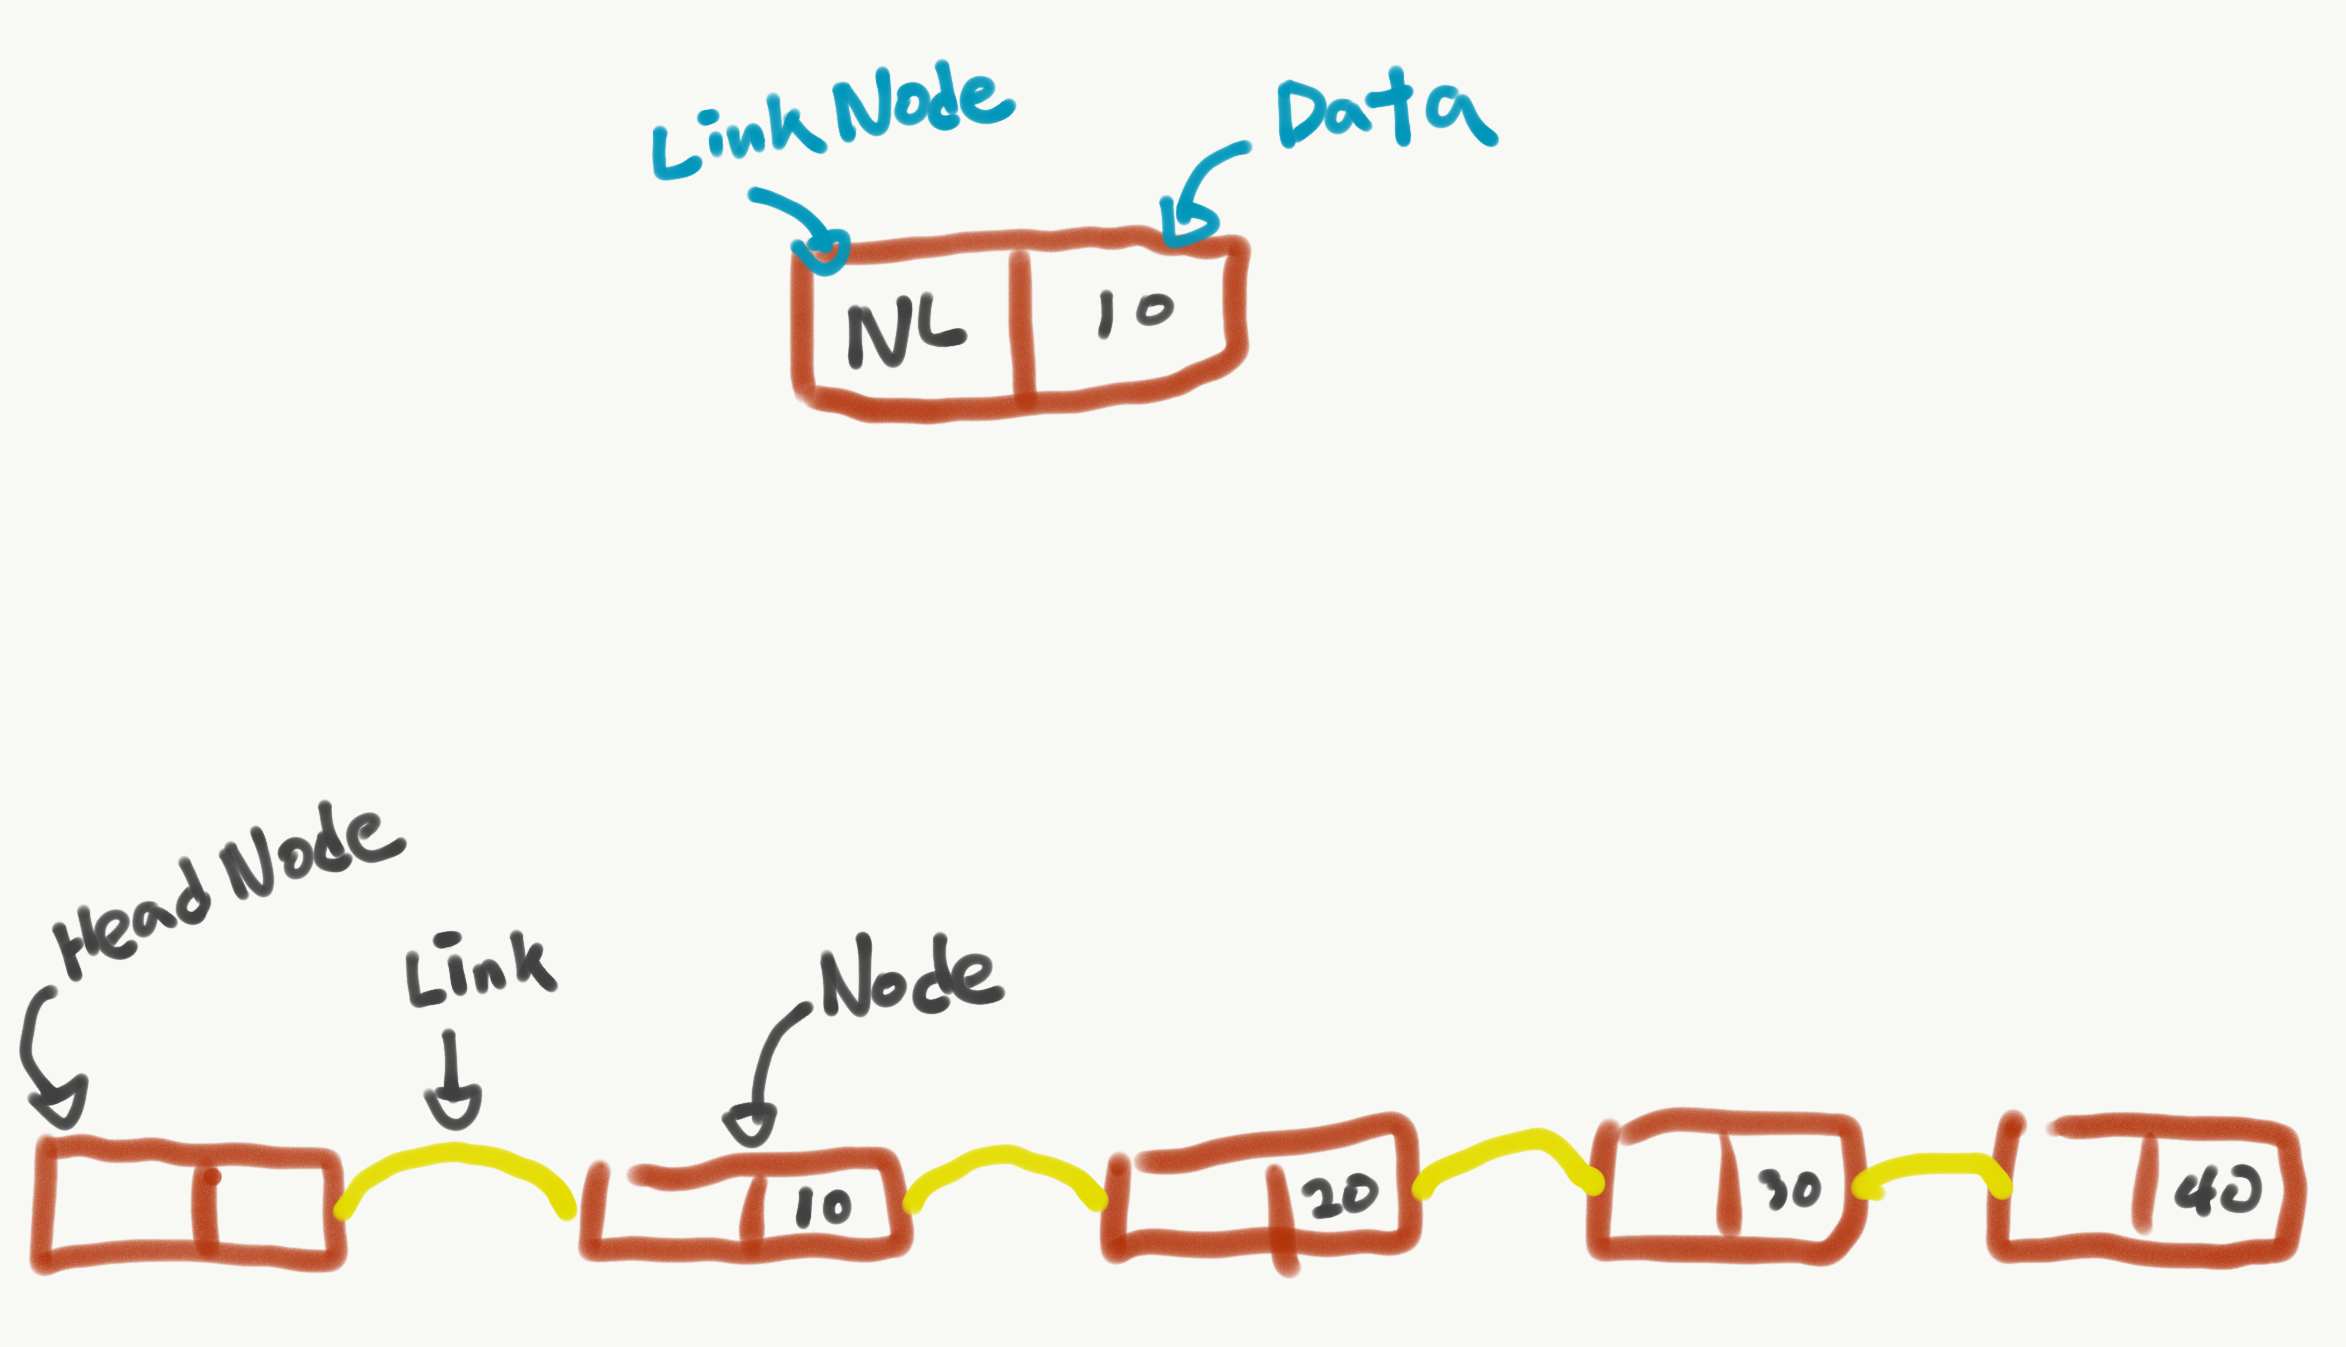 Link Node
Data
NL
10
Head Node
Link
Node
10
20
30
40